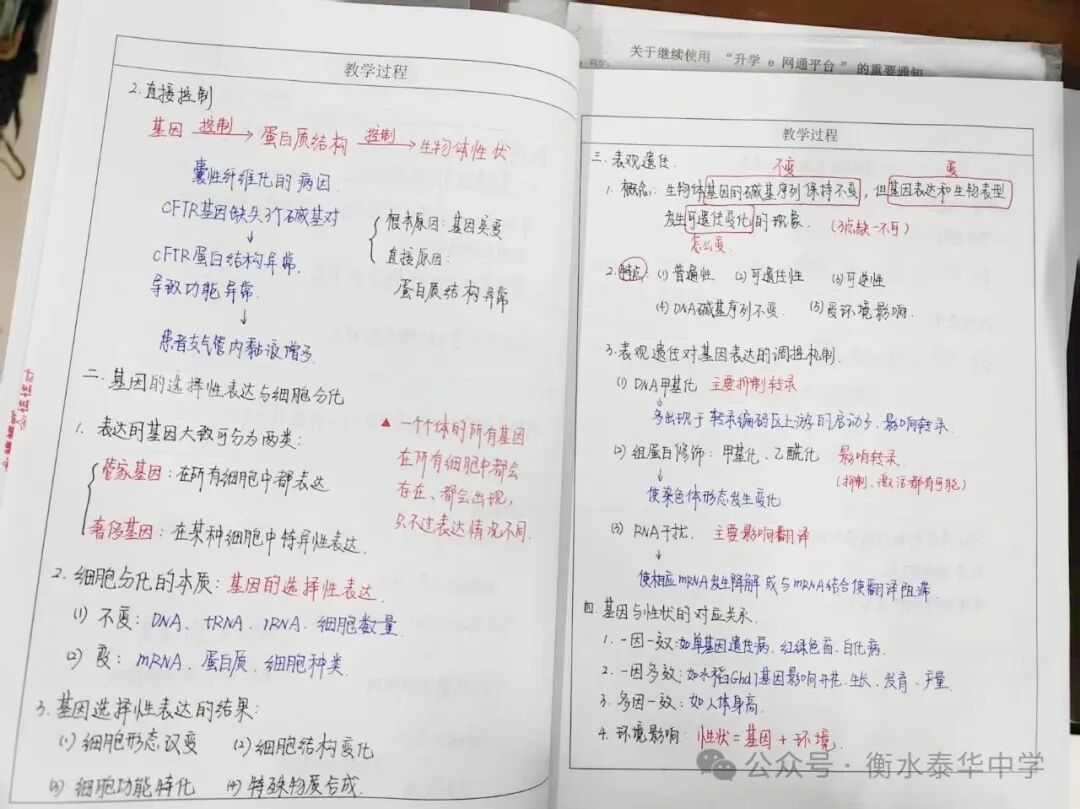 教学过程
2.直接控制
基因 控制→ 蛋白质结构 控制→ 生物体性状.
囊性纤维化的病因
CFTR基因缺失3个碱基对
↓
CFTR蛋白结构异常.
导致功能异常.
↓
患者支气管内黏液增多
根本原因:基因突变
直接原因:
蛋白质结构异常
二.基因的选择性表达与细胞分化
1.表达的基因大致可分为两类:
管家基因:在所有细胞中都表达
奢侈基因:在某种细胞中特异性表达.
▲一个个体的所有基因
在所有细胞中都会
存在、都会出现,
只不过表达情况不同.
2.细胞分化的本质:基因的选择性表达.
(1) 不变:DNA、tRNA、rRNA、细胞数量.
(2) 变:mRNA、蛋白质、细胞种类.
3.基因选择性表达的结果:
(1)细胞形态改变 (2)细胞结构变化
(3)细胞功能特化 (4)特殊物质合成.
关于继续使用 “升学 e 网通平台” 的重要通知
教学过程
三.表观遗传.
不变 变
1.概念:生物体基因的碱基序列保持不变,但基因表达和生物表型
发生可遗传变化的现象. (3点缺一不可)
怎么变.
2.特点:(1)普遍性 (2)可遗传性 (3)可逆性
(4)DNA碱基序列不变. (5)受环境影响.
3.表观遗传对基因表达的调控机制.
(1) DNA甲基化 主要抑制转录
↓
多出现于转录编码区上游的启动子,影响转录.
(2)组蛋白修饰:甲基化、乙酰化 影响转录.
(抑制、激活都有可能)
↓
使染色体形态发生变化
(3) RNA干扰. 主要影响翻译
↓
使相应mRNA发生降解或与mRNA结合使翻译阻滞
四.基因与性状的对应关系.
1.一因一效:如单基因遗传病,红绿色盲、白化病.
2.一因多效:如水稻Ghd7基因影响开花、生长、发育、产量.
3.多因一效:如人体身高.
4.环境影响:性状=基因+环境.
公众号·衡水泰华中学